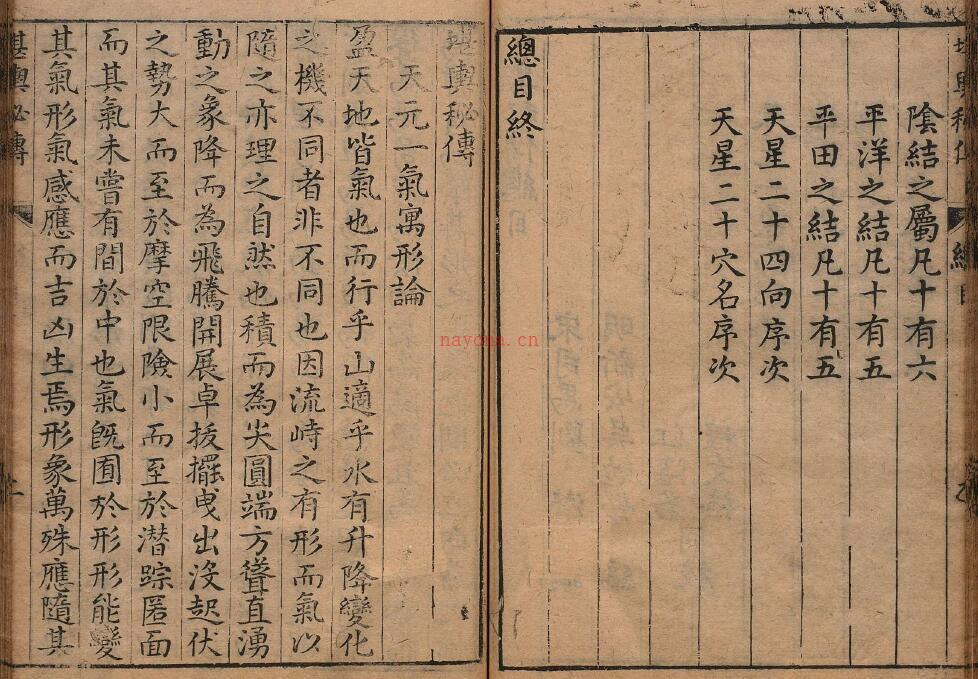 陰結之屬凡十有六
平洋之結凡十有五
平田之結凡十有五
天星二十四向序次
天星二十穴名序次
總目終
堪輿秘傳
天元一氣寓形論
盈天地皆氣也而行乎山適乎水有升降變化
之機不同者非不同也因流峙之有形而氣以
隨之亦理之自然也積而為尖圓端方聳直湧
動之象降而為飛騰開展卓拔擺曳出沒起伏
之勢大而至於摩空限險小而至於潜踪匿面
而其氣未嘗有間於中也氣既囿於形形能變
其氣形氣感應而吉凶生焉形象萬殊應隨其
堪輿秘傳
nayona.cn